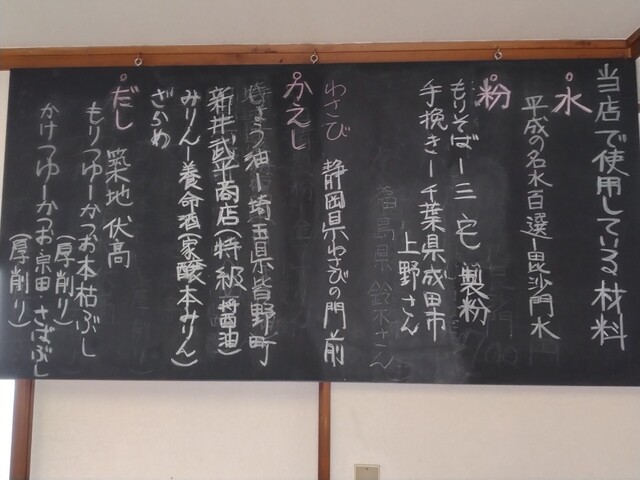 当店で使用している材料
水
平成の名水百選ー毘沙門水
粉
もりそばー三宅製粉
手挽きー千葉県成田市
上野さん
福島県 鈴木さん
わさび 静岡県わさびの門前
かえし
しょう油ー埼玉県皆野町
新井武平商店(特級醤油)
みりんー養命酒(家醸本みりん)
ざらめ
だし 築地伏高
もりつゆーかつお本枯ぶし
(厚削り)
かけつゆーかつお・宗田・さばぶし
(厚削り)